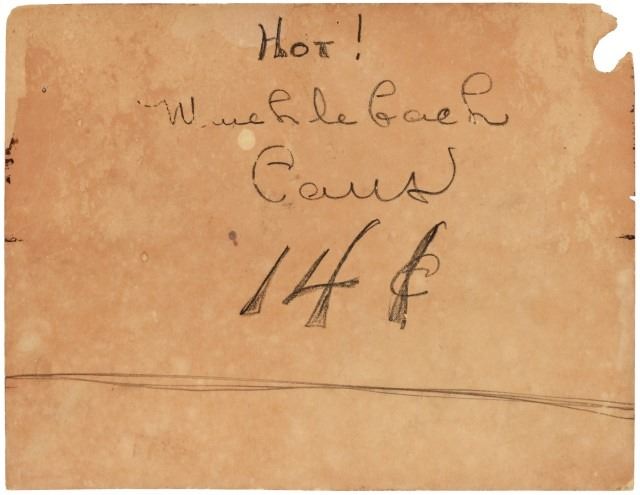 Hot!
Muehlebach
Cans
14¢